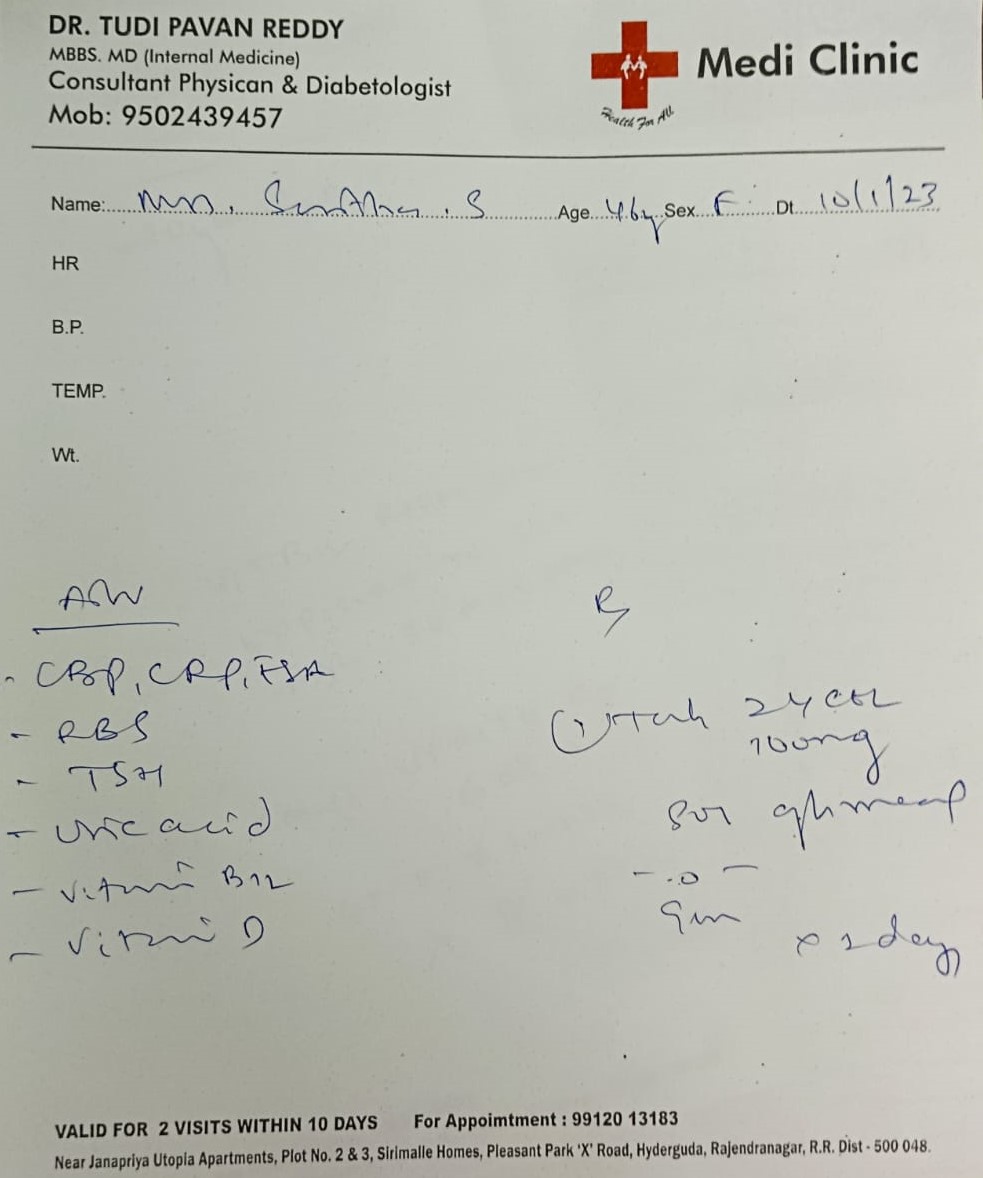 DR. TUDI PAVAN REDDY
MBBS. MD (Internal Medicine)
Consultant Physican & Diabetologist
Mob: 9502439457
Medi Clinic
Health For All
Name: Mrs. S Age 46y Sex F Dt 10/1/23
HR
B.P.
TEMP.
Wt.
- CBP, CRP,
- RBS
- TSH
- Uric acid
- Vitamin B12
- Vitamin D
Rx
① 
100mg
x 2 days
VALID FOR 2 VISITS WITHIN 10 DAYS For Appoimtment : 99120 13183
Near Janapriya Utopia Apartments, Plot No. 2 & 3, Sirimalle Homes, Pleasant Park 'X' Road, Hyderguda, Rajendranagar, R.R. Dist - 500 048.